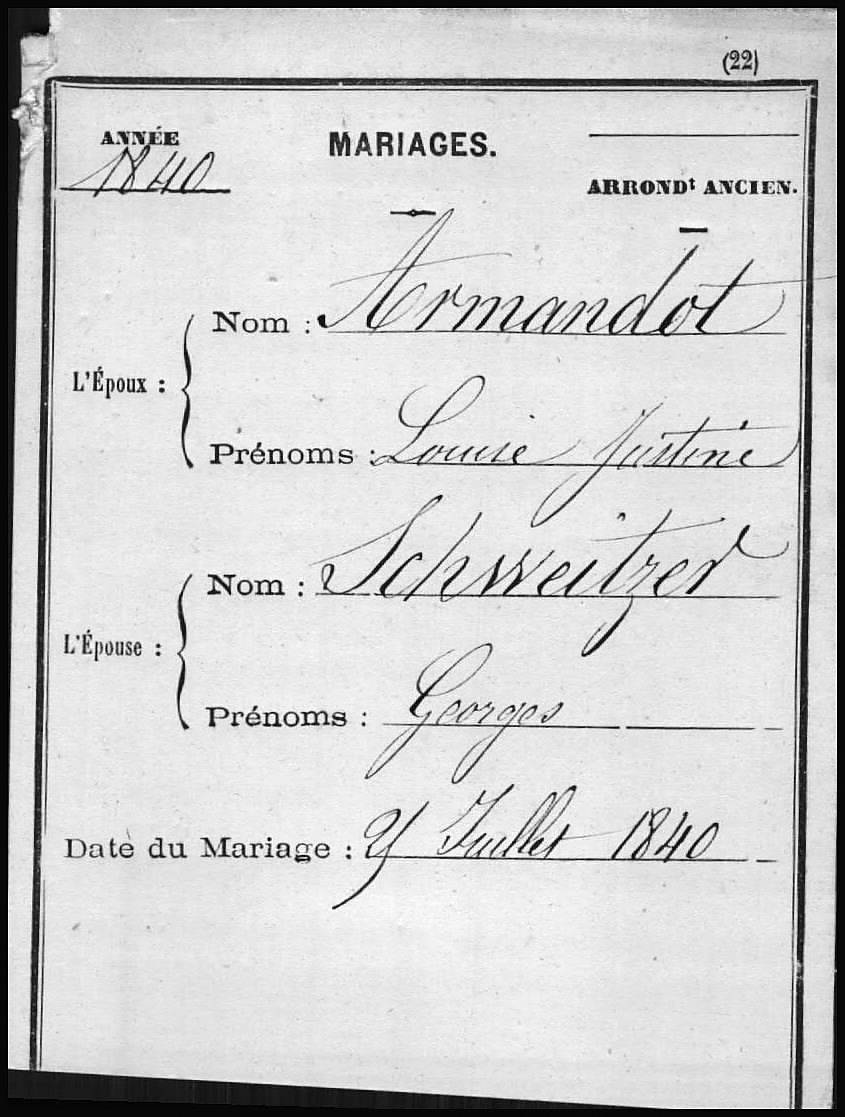 (22)
ANNÉE
1840
MARIAGES.
ARRONDt ANCIEN.
L'Époux :
Nom : Armandot
Prénoms : Louise Justine
L'Épouse :
Nom : Schweitzer
Prénoms : Georges
Date du Mariage : Juillet 1840